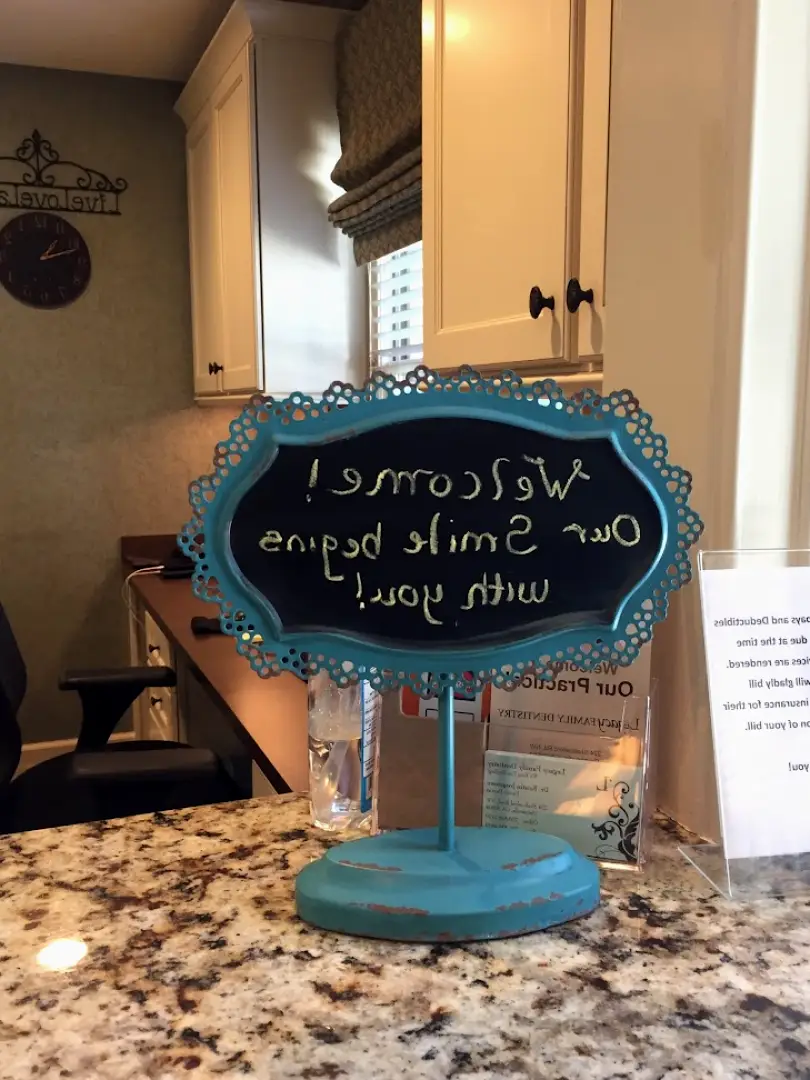 Live Love
Welcome!
Our Smile begins
with you!
Welcome
Our Practice
Legacy FAMILY DENTISTRY
Legacy Family Dentistry
pays and Deductibles
due at the time
ices are rendered.
will gladly bill
insurance for their
on of your bill.
you!